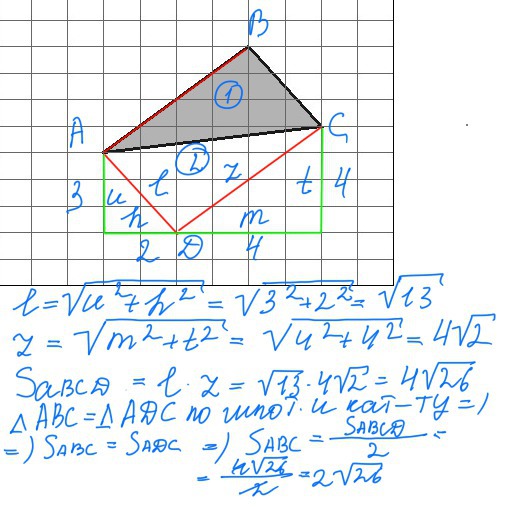 B
①
A
C
②
3
u
l
z
t
4
h
m
2
D
4
l = √u²+h² = √3²+2² = √13
z = √m²+t² = √4²+4² = 4√2
SABCD = l · z = √13 · 4√2 = 4√26
△ABC = △ADC по гипот. и кат-ту =)
=) SABC = SADC =) SABC = SABCD/2 =
= 4√26/2 = 2√26